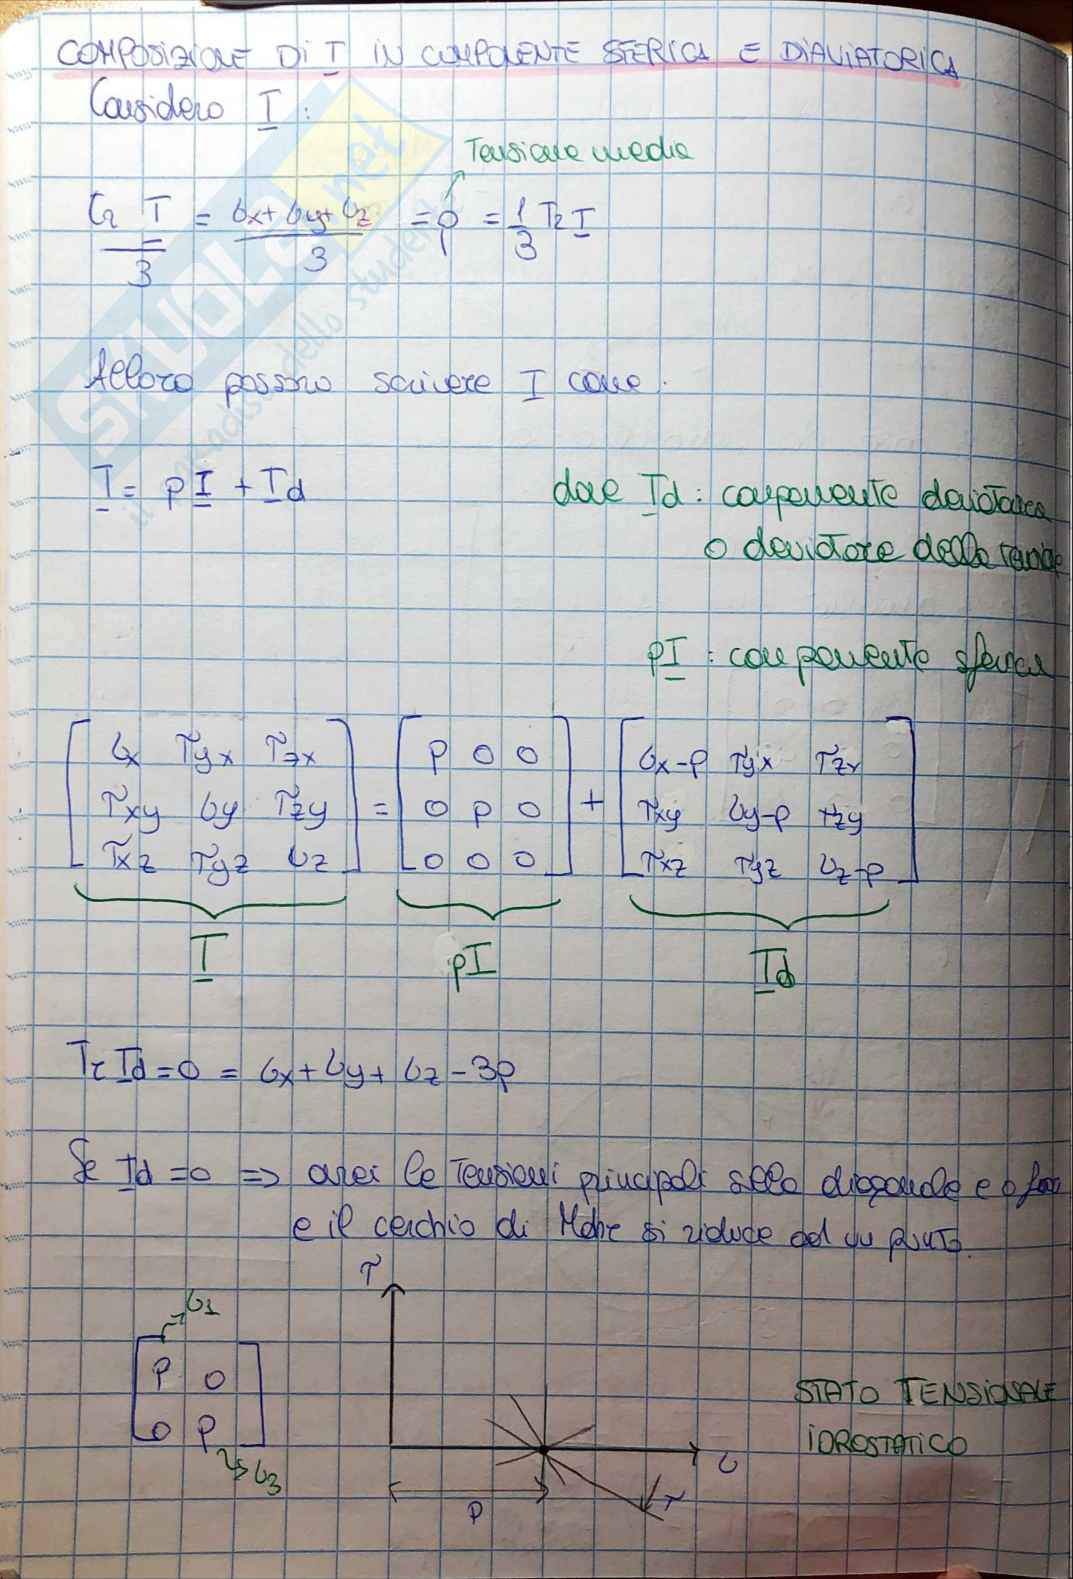 COMPOSIZIONE DI T IN COMPONENTE SFERICA E DIAVIATORICA
Considero T :
Tensione media
Tr T / 3 = (σx+σy+σz) / 3 = p = 1/3 Tr T
Allora possono scrivere T come:
T = pI + Td
dove Td : componente deviatorica
o deviatore delle tensioni
pI : componente sferica
[σx τyx τzx] = [p 0 0] + [σx-p τyx τzx]
[τxy σy τzy] [0 p 0] [τxy σy-p τzy]
[τxz τyz σz] [0 0 0] [τxz τyz σz-p]
T pI Td
Tr Td = 0 = σx+σy+σz-3p
Se Td = 0 => avrei le tensioni principali sulla diagonale e 0 fuori
e il cerchio di Mohr si riduce ad un punto.
τ
σ1
[p 0]
[0 p]
σ3
σ
p
τ
STATO TENSIONALE
IDROSTATICO
SKUOLA.net
il paradiso dello studente